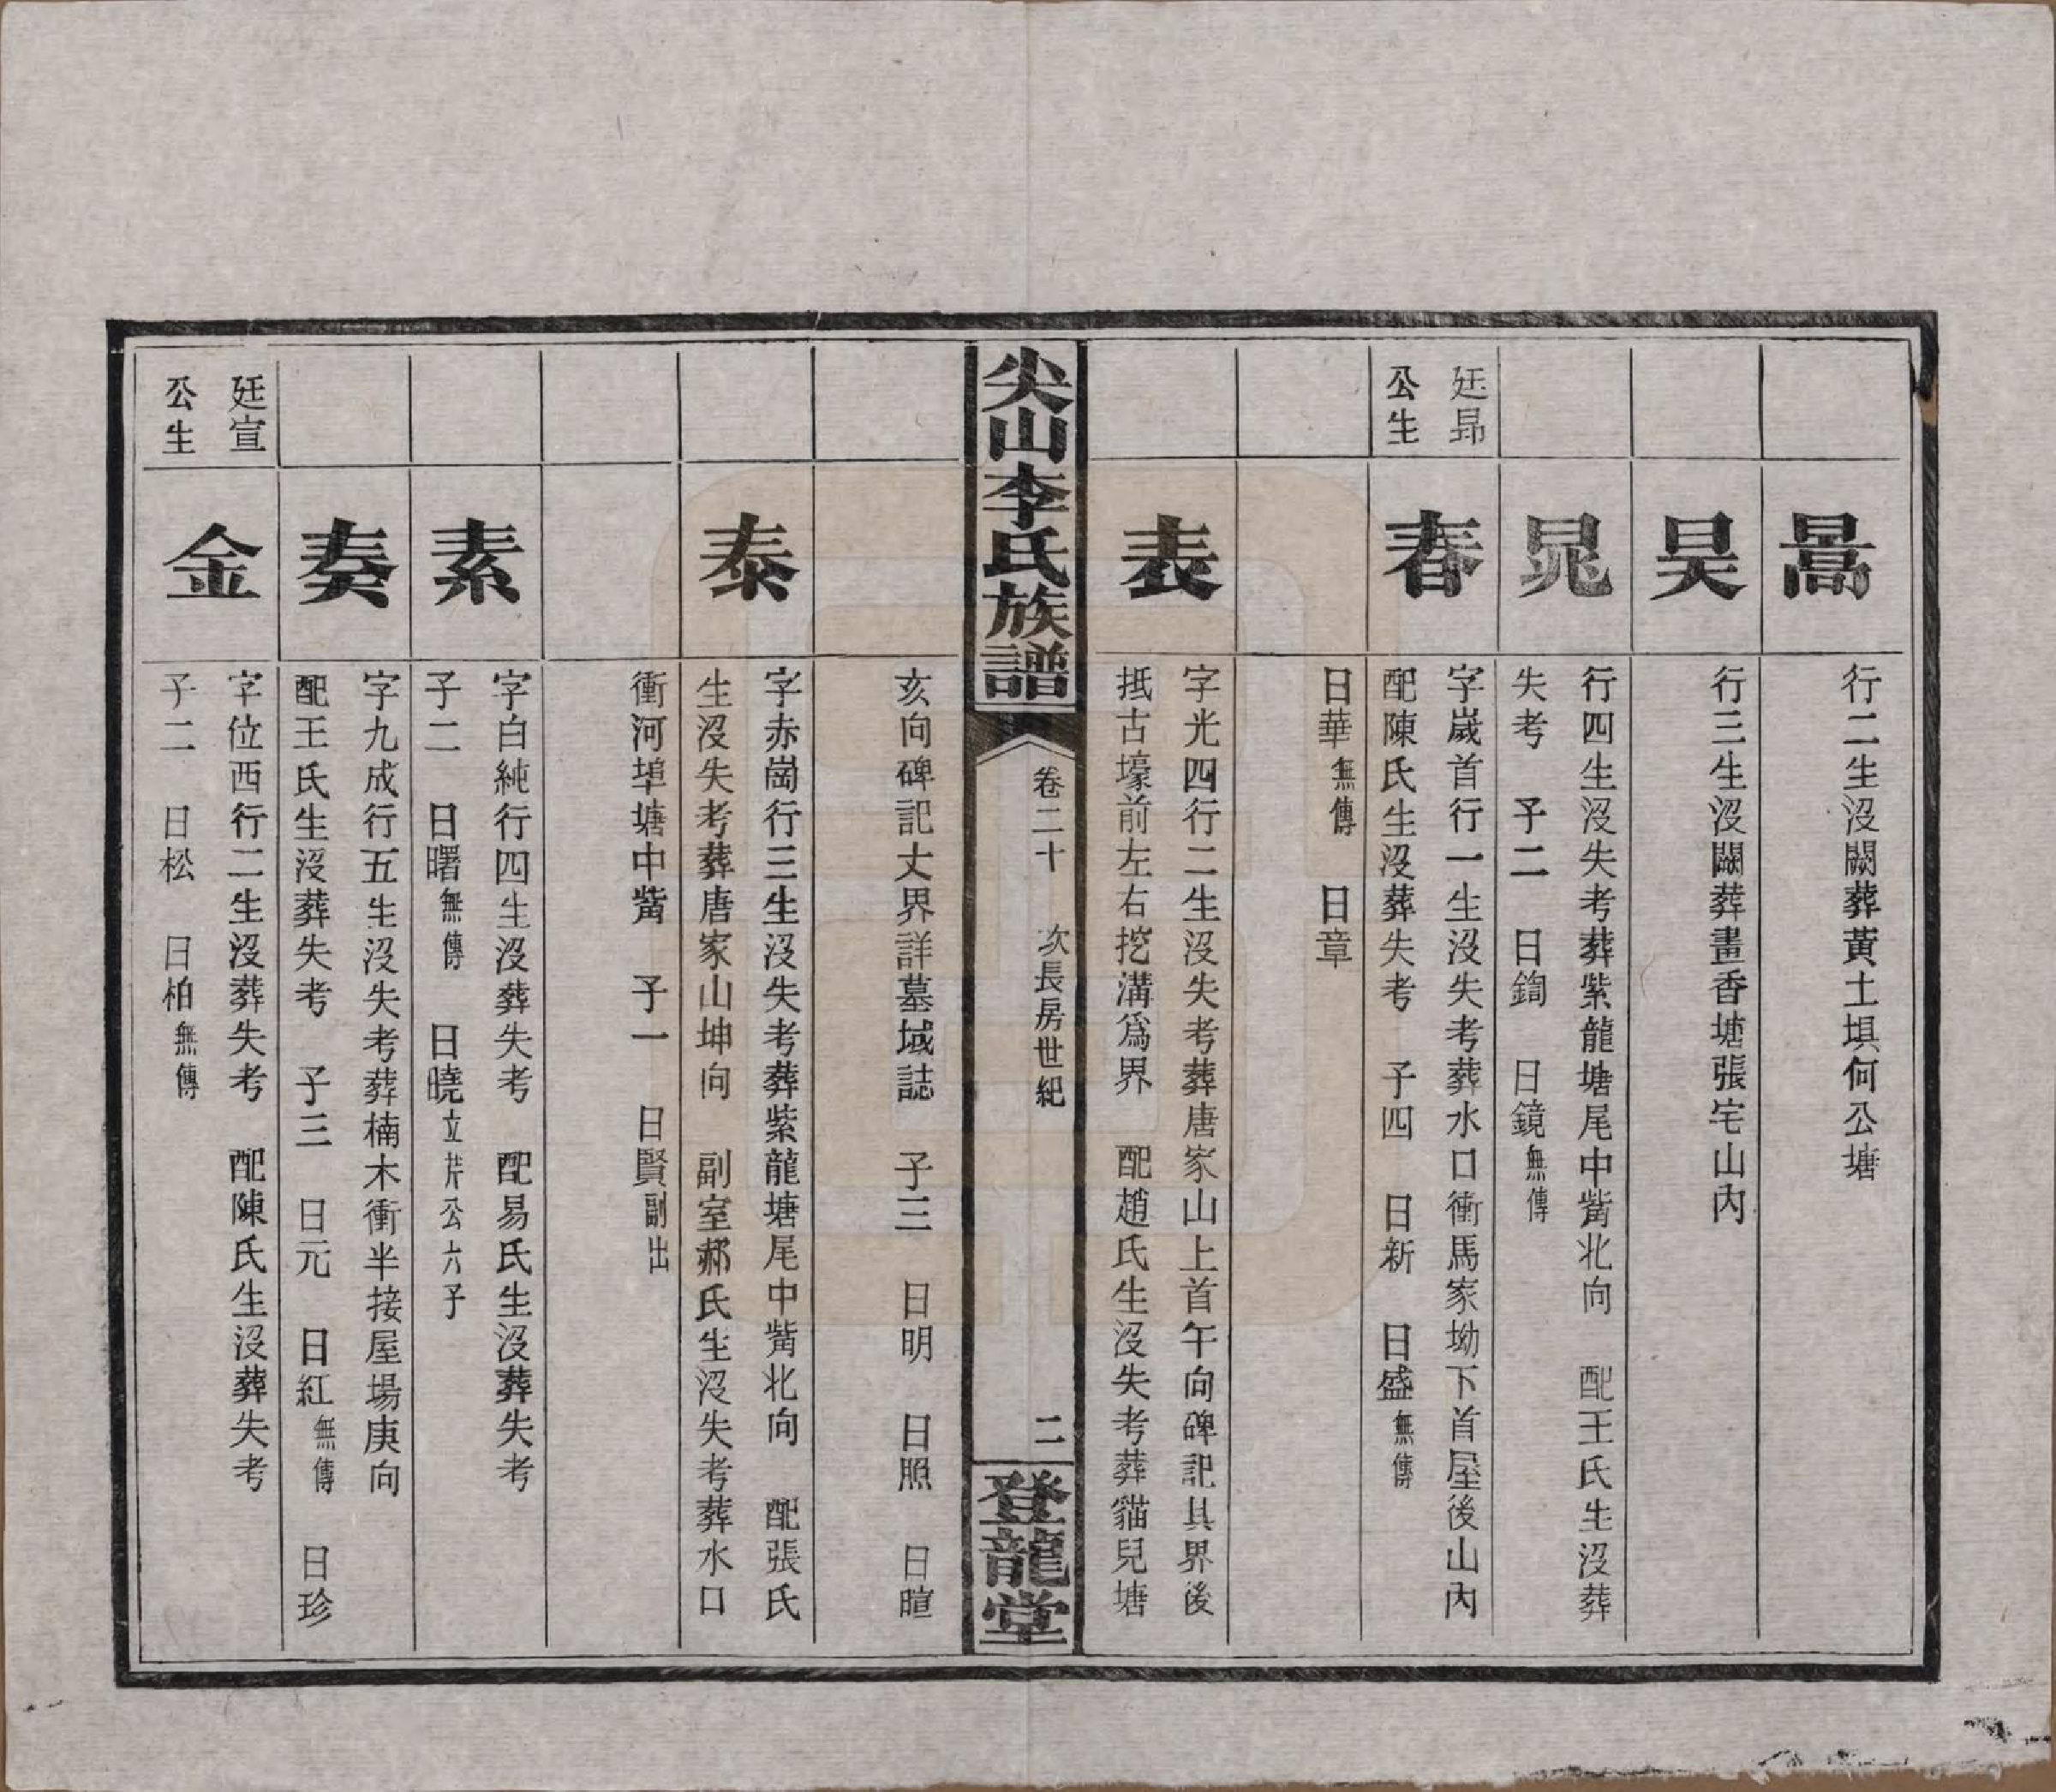 暠
行二生沒闕葬黃土塤何公塘
昊
行三生沒闕葬畫香塘張宅山內
晁
行四生沒失考葬紫龍塘尾中觜北向　配王氏生沒葬
失考　子二　日鍧　日鏡無傳
廷昴
公生
春
字歲首行一生沒失考葬水口衝馬家坳下首屋後山內
配陳氏生沒葬失考　子四　日新　日盛無傳
日華無傳　日章
表
字光四行二生沒失考葬唐家山上首午向碑記其界後
抵古壕前左右挖溝爲界　配趙氏生沒失考葬貓兒塘
尖山李氏族譜
卷二十　次長房世紀
二
登龍堂
亥向碑記丈界詳墓域誌　子三　日明　日照　日暄
泰
字赤崗行三生沒失考葬紫龍塘尾中觜北向　配張氏
生沒失考葬唐家山坤向　副室郝氏生沒失考葬水口
衝河埠塘中觜　子一　日賢副出
素
字白純行四生沒葬失考　配易氏生沒葬失考
子二　日曙無傳　日曉立芹公六子
奏
字九成行五生沒失考葬楠木衝半接屋場庚向
配王氏生沒葬失考　子三　日元　日紅無傳　日珍
廷宣
公生
金
字位西行二生沒葬失考　配陳氏生沒葬失考
子二　日松　日柏無傳